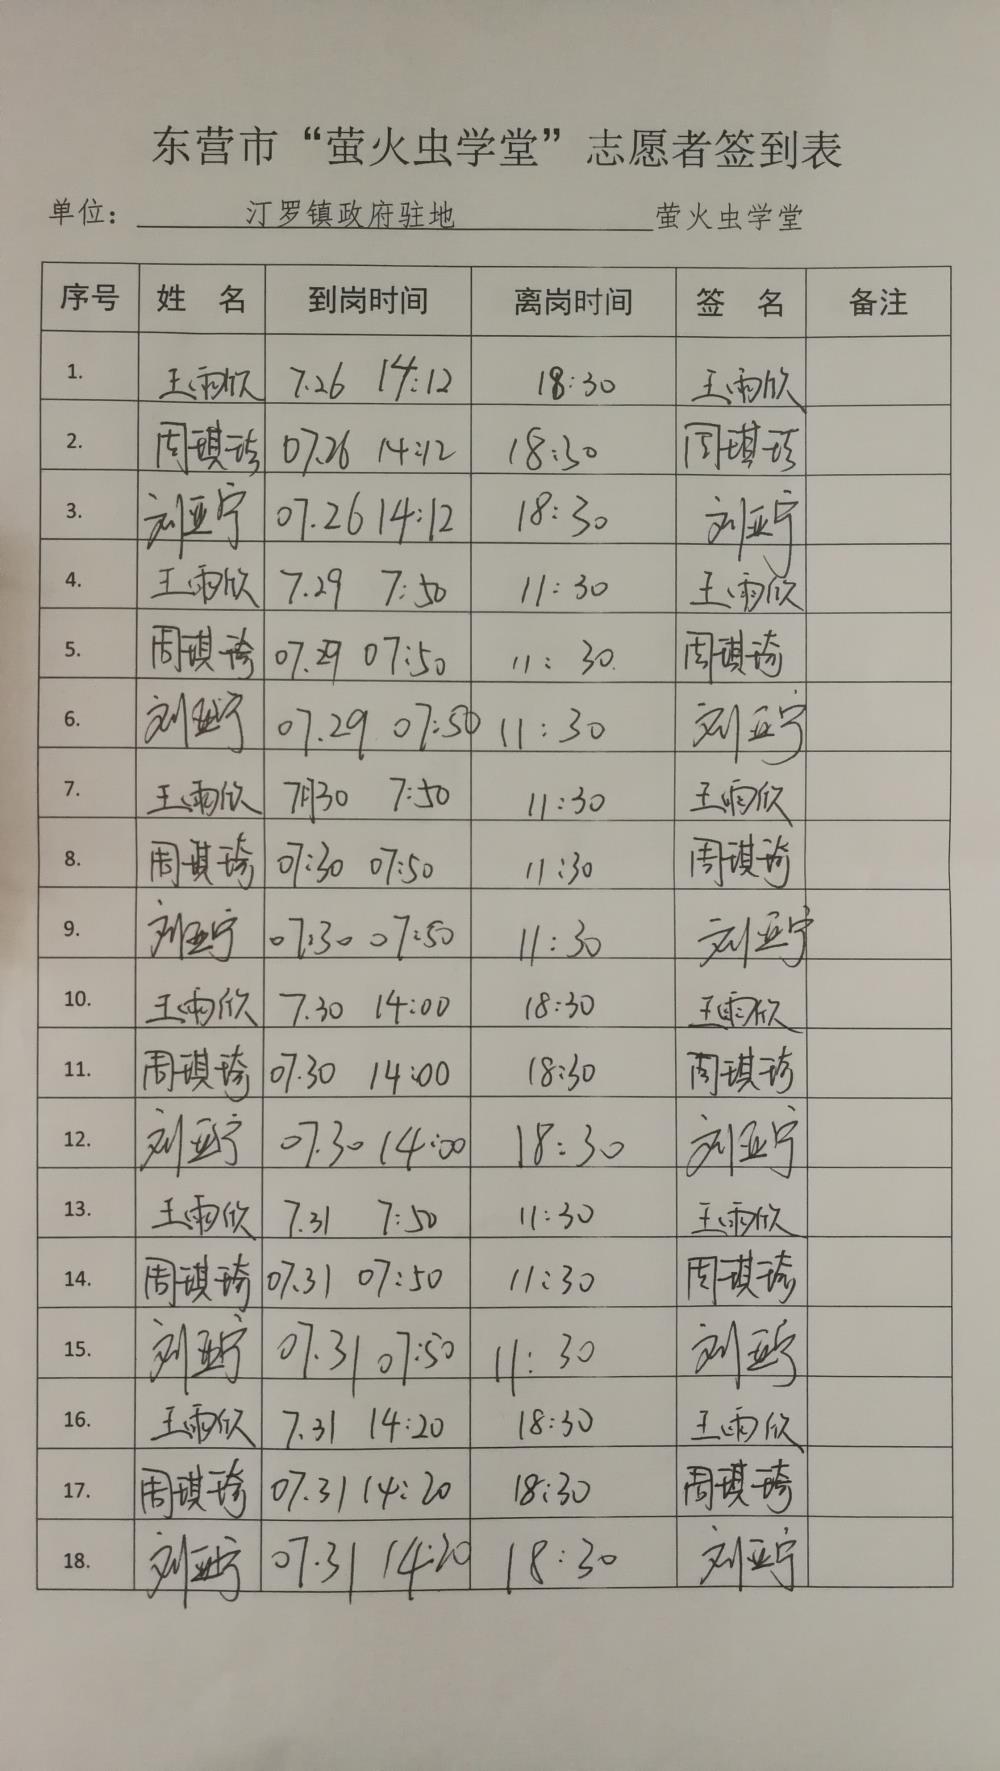 东营市“萤火虫学堂”志愿者签到表
单位： 汀罗镇政府驻地 萤火虫学堂
序号 姓 名 到岗时间 离岗时间 签 名 备注
1. 王雨欣 7.26 14:12 18:30 王雨欣
2. 周琪琦 07.26 14:12 18:30 周琪琦
3. 刘亚宁 07.26 14:12 18:30 刘亚宁
4. 王雨欣 7.29 7:50 11:30 王雨欣
5. 周琪琦 07.29 07:50 11:30 周琪琦
6. 刘亚宁 07.29 07:50 11:30 刘亚宁
7. 王雨欣 7月30 7:50 11:30 王雨欣
8. 周琪琦 07:30 07:50 11:30 周琪琦
9. 刘亚宁 07:30 07:50 11:30 刘亚宁
10. 王雨欣 7.30 14:00 18:30 王雨欣
11. 周琪琦 07.30 14:00 18:30 周琪琦
12. 刘亚宁 07.30 14:00 18:30 刘亚宁
13. 王雨欣 7.31 7:50 11:30 王雨欣
14. 周琪琦 07.31 07:50 11:30 周琪琦
15. 刘亚宁 07.31 07:50 11:30 刘亚宁
16. 王雨欣 7.31 14:20 18:30 王雨欣
17. 周琪琦 07.31 14:20 18:30 周琪琦
18. 刘亚宁 07.31 14:20 18:30 刘亚宁